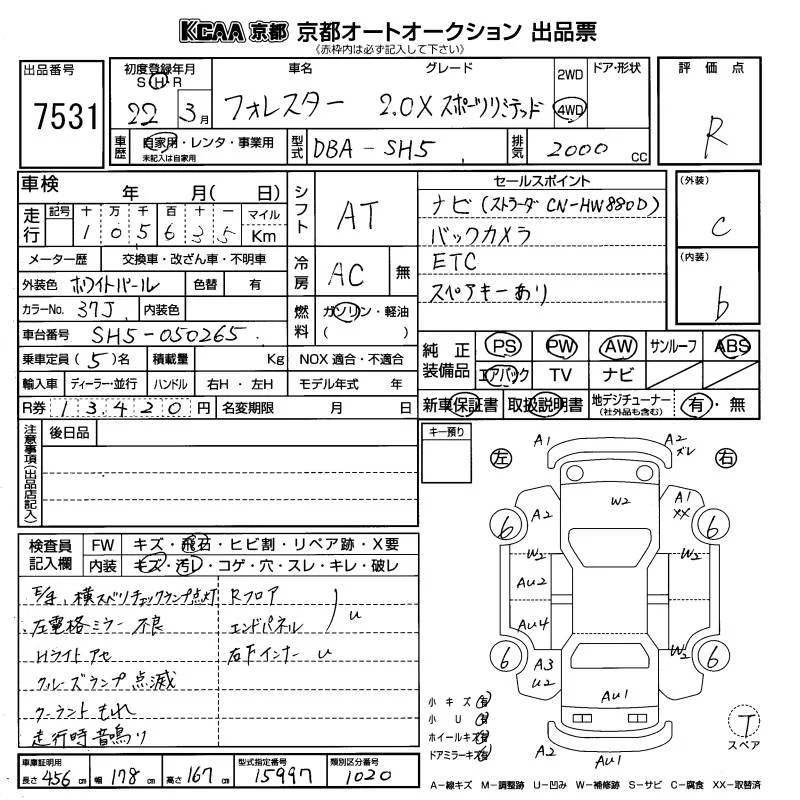 KCAA 京都 京都オートオークション 出品票
(赤枠内は必ず記入して下さい)
出品番号
7531
初度登録年月
S H R
22 3月
車名
フォレスター
グレード
2.0X スポーツリミテッド
2WD
4WD
ドア・形状
評価点
R
車歴
自家用・レンタ・事業用
未記入は自家用
型式
DBA-SH5
排気
2000 CC
車検 年 月( 日)
走行
記号 十 万 千 百 十 一 マイル
1 0 5 6 3 5 Km
メーター歴 交換車・改ざん車・不明車
外装色 ホワイトパール 色替 有
カラーNo. 37J 内装色
車台番号 SH5-050265
乗車定員 (5)名 積載量 Kg
輸入車 ディーラー・並行 ハンドル 右H・左H
R券 13420円 名変期限 月 日
シフト
AT
冷房
AC 無
燃料
ガソリン・軽油
( )
NOX 適合・不適合
モデル年式 年
セールスポイント
ナビ(ストラーダ CN-HW880D)
バックカメラ
ETC
スペアキーあり
(外装)
C
(内装)
b
純正装備品
PS PW AW サンルーフ ABS
エアバック TV ナビ
新車保証書 取扱説明書 地デジチューナー
(社外品も含む) 有・無
注意事項(出品店記入)
後日品
キー預り
検査員記入欄
FW キズ・飛石・ヒビ割・リペア跡・X要
内装 キズ・汚レ・コゲ・穴・スレ・キレ・破レ
横スベリチェックランプ点灯
左電格ミラー不良
Hライトアセ
クルーズランプ点滅
クーラントもれ
走行時音鳴り
Rフロア
エンドパネル
u
右下インナー u
左
右
A1
A2
ズレ
W2
A2
A1
XX
6
6
W2
W2
AU2
AU4
W2
6
6
A3
U2
AU1
A2
AU1
小キズ(有)
小 U(有)
ホイールキズ(有)
ドアミラーキズ(有)
T
スペア
車庫証明用
長さ 456cm 幅 178cm 高さ 167cm
型式指定番号
15997
類別区分番号
1020
A-線キズ M-調整跡 U-凹み W-補修跡 S-サビ C-腐食 XX-取替済